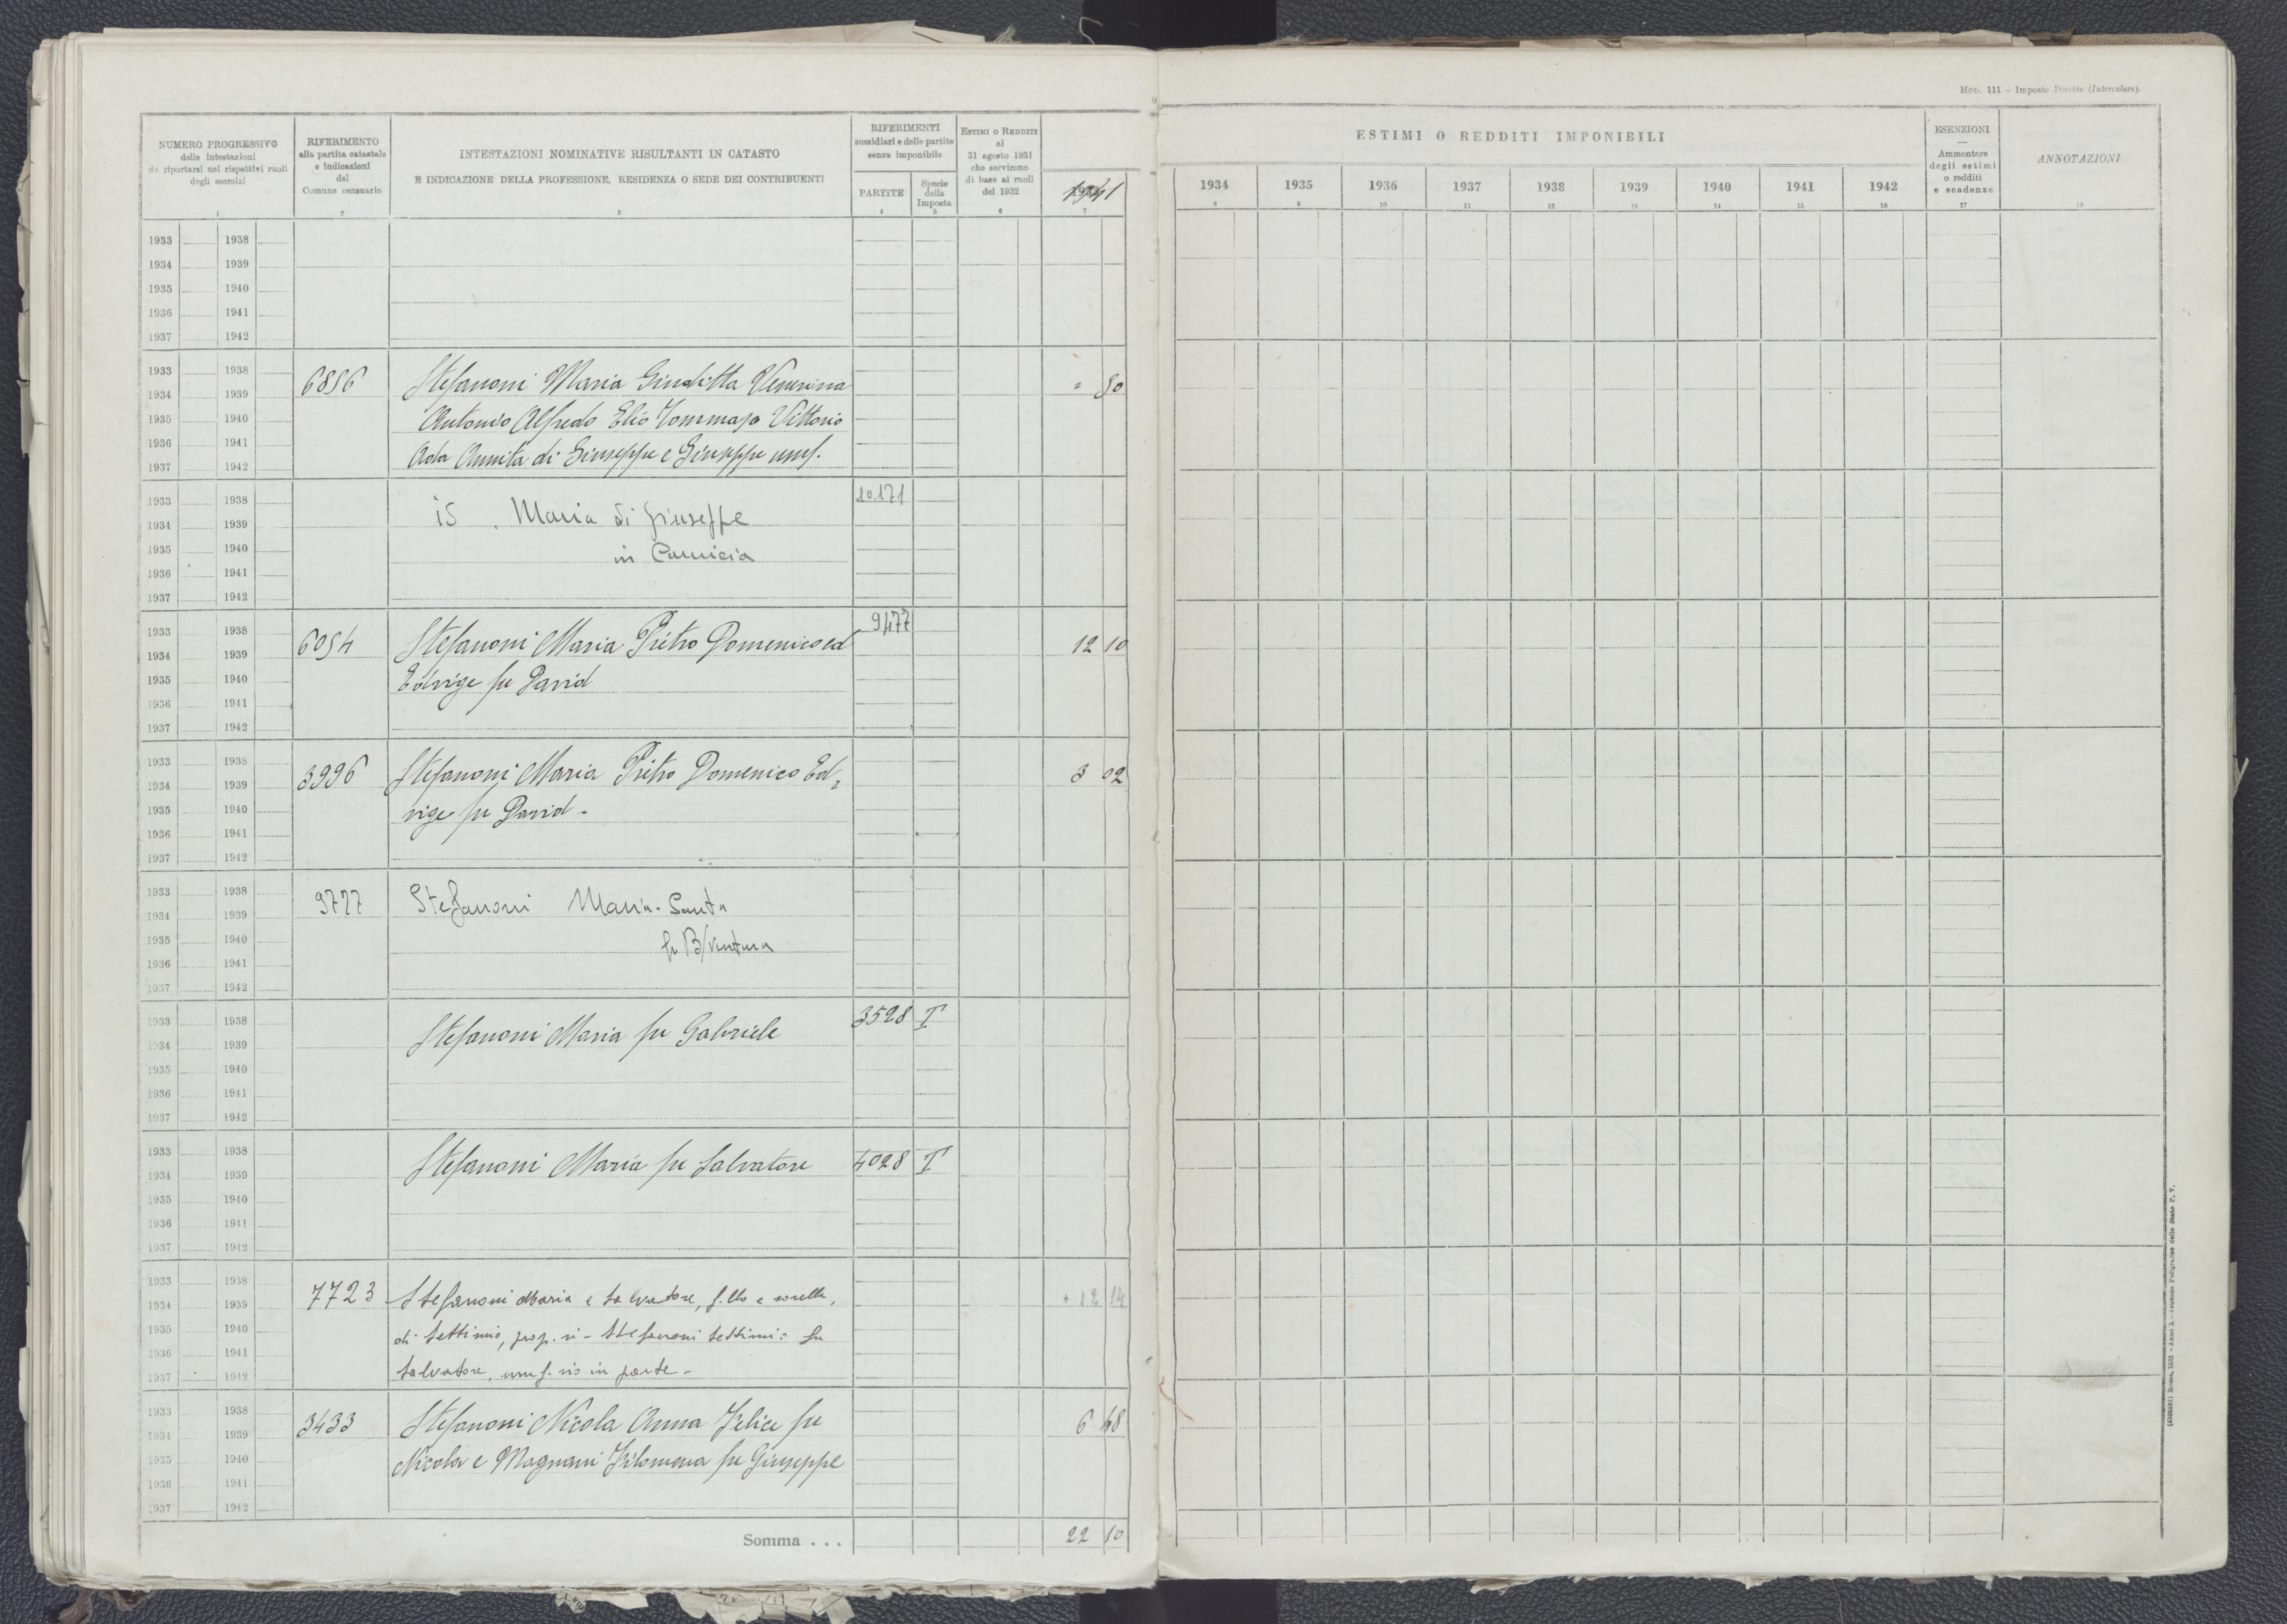 Mod. 111 - Imposte Dirette (Intercalare).
NUMERO PROGRESSIVO
delle intestazioni
da riportarsi nei rispettivi ruoli
degli esercizi
1
RIFERIMENTO
alla partita catastale
e indicazioni
del
Comune censuario
2
INTESTAZIONI NOMINATIVE RISULTANTI IN CATASTO
E INDICAZIONE DELLA PROFESSIONE, RESIDENZA O SEDE DEI CONTRIBUENTI
RIFERIMENTI
sussidiari e delle partite
senza imponibile
PARTITE
4
Specie
della
Imposta
5
ESTIMI O REDDITI
al
31 agosto 1931
che servirono
di base ai ruoli
del 1932
6
1941
7
ESTIMI O REDDITI IMPONIBILI
1934 1935 1936 1937 1938 1939 1940 1941 1942
8 9 10 11 12 13 14 15 16
ESENZIONI
Ammontare
degli estimi
o redditi
e scadenze
17
ANNOTAZIONI
18
1933 1938
1934 1939
1935 1940
1936 1941
1937 1942
1933 1938
6856 Stefanoni Maria Giuditta Venerina = 50
1934 1939
Antonio Alfredo Elio Tommaso Vittorio
1935 1940
1936 1941
Ada Annita di Giuseppe e Giuseppe usuf.
1937 1942
1933 1938 10.171
is . Maria di Giuseppe
1934 1939
1935 1940
in Camicia
1936 1941
1937 1942
1933 1938 9477
6054 Stefanoni Maria Pietro Domenico ed 12 10
1934 1939
1935 1940
Edvige fu David
1936 1941
1937 1942
1933 1938
3996 Stefanoni Maria Pietro Domenico Ed= 3 02
1934 1939
1935 1940
vige fu David -
1936 1941
1937 1942
1933 1938
9727 Stefanoni Maria-Santa
1934 1939
1935 1940
fu B/ventura
1936 1941
1937 1942
1933 1938 3528 T
Stefanoni Maria fu Gabriele
1934 1939
1935 1940
1936 1941
1937 1942
1933 1938
Stefanoni Maria fu Salvatore 4028 T
1934 1939
1935 1940
1936 1941
1937 1942
1933 1938
7723 Stefanoni Maria e Salvatore, f.llo e sorella, + 12 14
1934 1939
1935 1940
di Settimio, prop.ri - Stefanoni Settimio fu
1936 1941
Salvatore, usuf.rio in parte -
1937 1942
1933 1938
3433 Stefanoni Nicola Anna Felice fu 6 48
1934 1939
1935 1940
Nicola e Magnani Filomena fu Giuseppe
1936 1941
1937 1942
Somma . . . 22 10